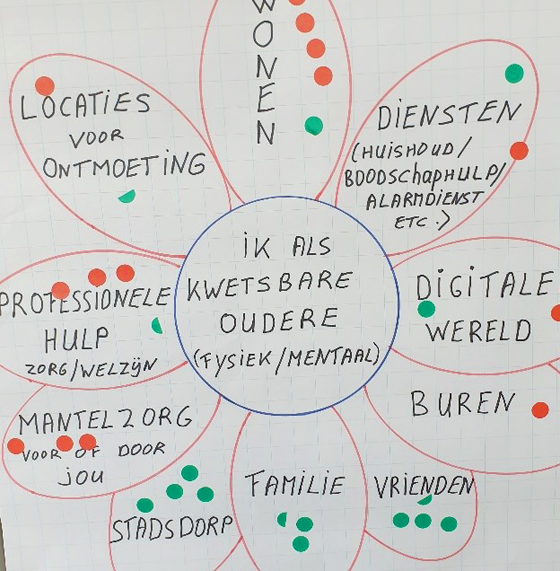 WONEN
LOCATIES
VOOR
ONTMOETING
DIENSTEN
(HUISHOUD/
BOODSCHAPHULP/
ALARMDIENST
ETC.)
IK ALS
KWETSBARE
OUDERE
(FYSIEK/MENTAAL)
PROFESSIONELE
HULP
ZORG/WELZIJN
DIGITALE
WERELD
MANTELZORG
VOOR OF DOOR
JOU
BUREN
STADSDORP
FAMILIE
VRIENDEN